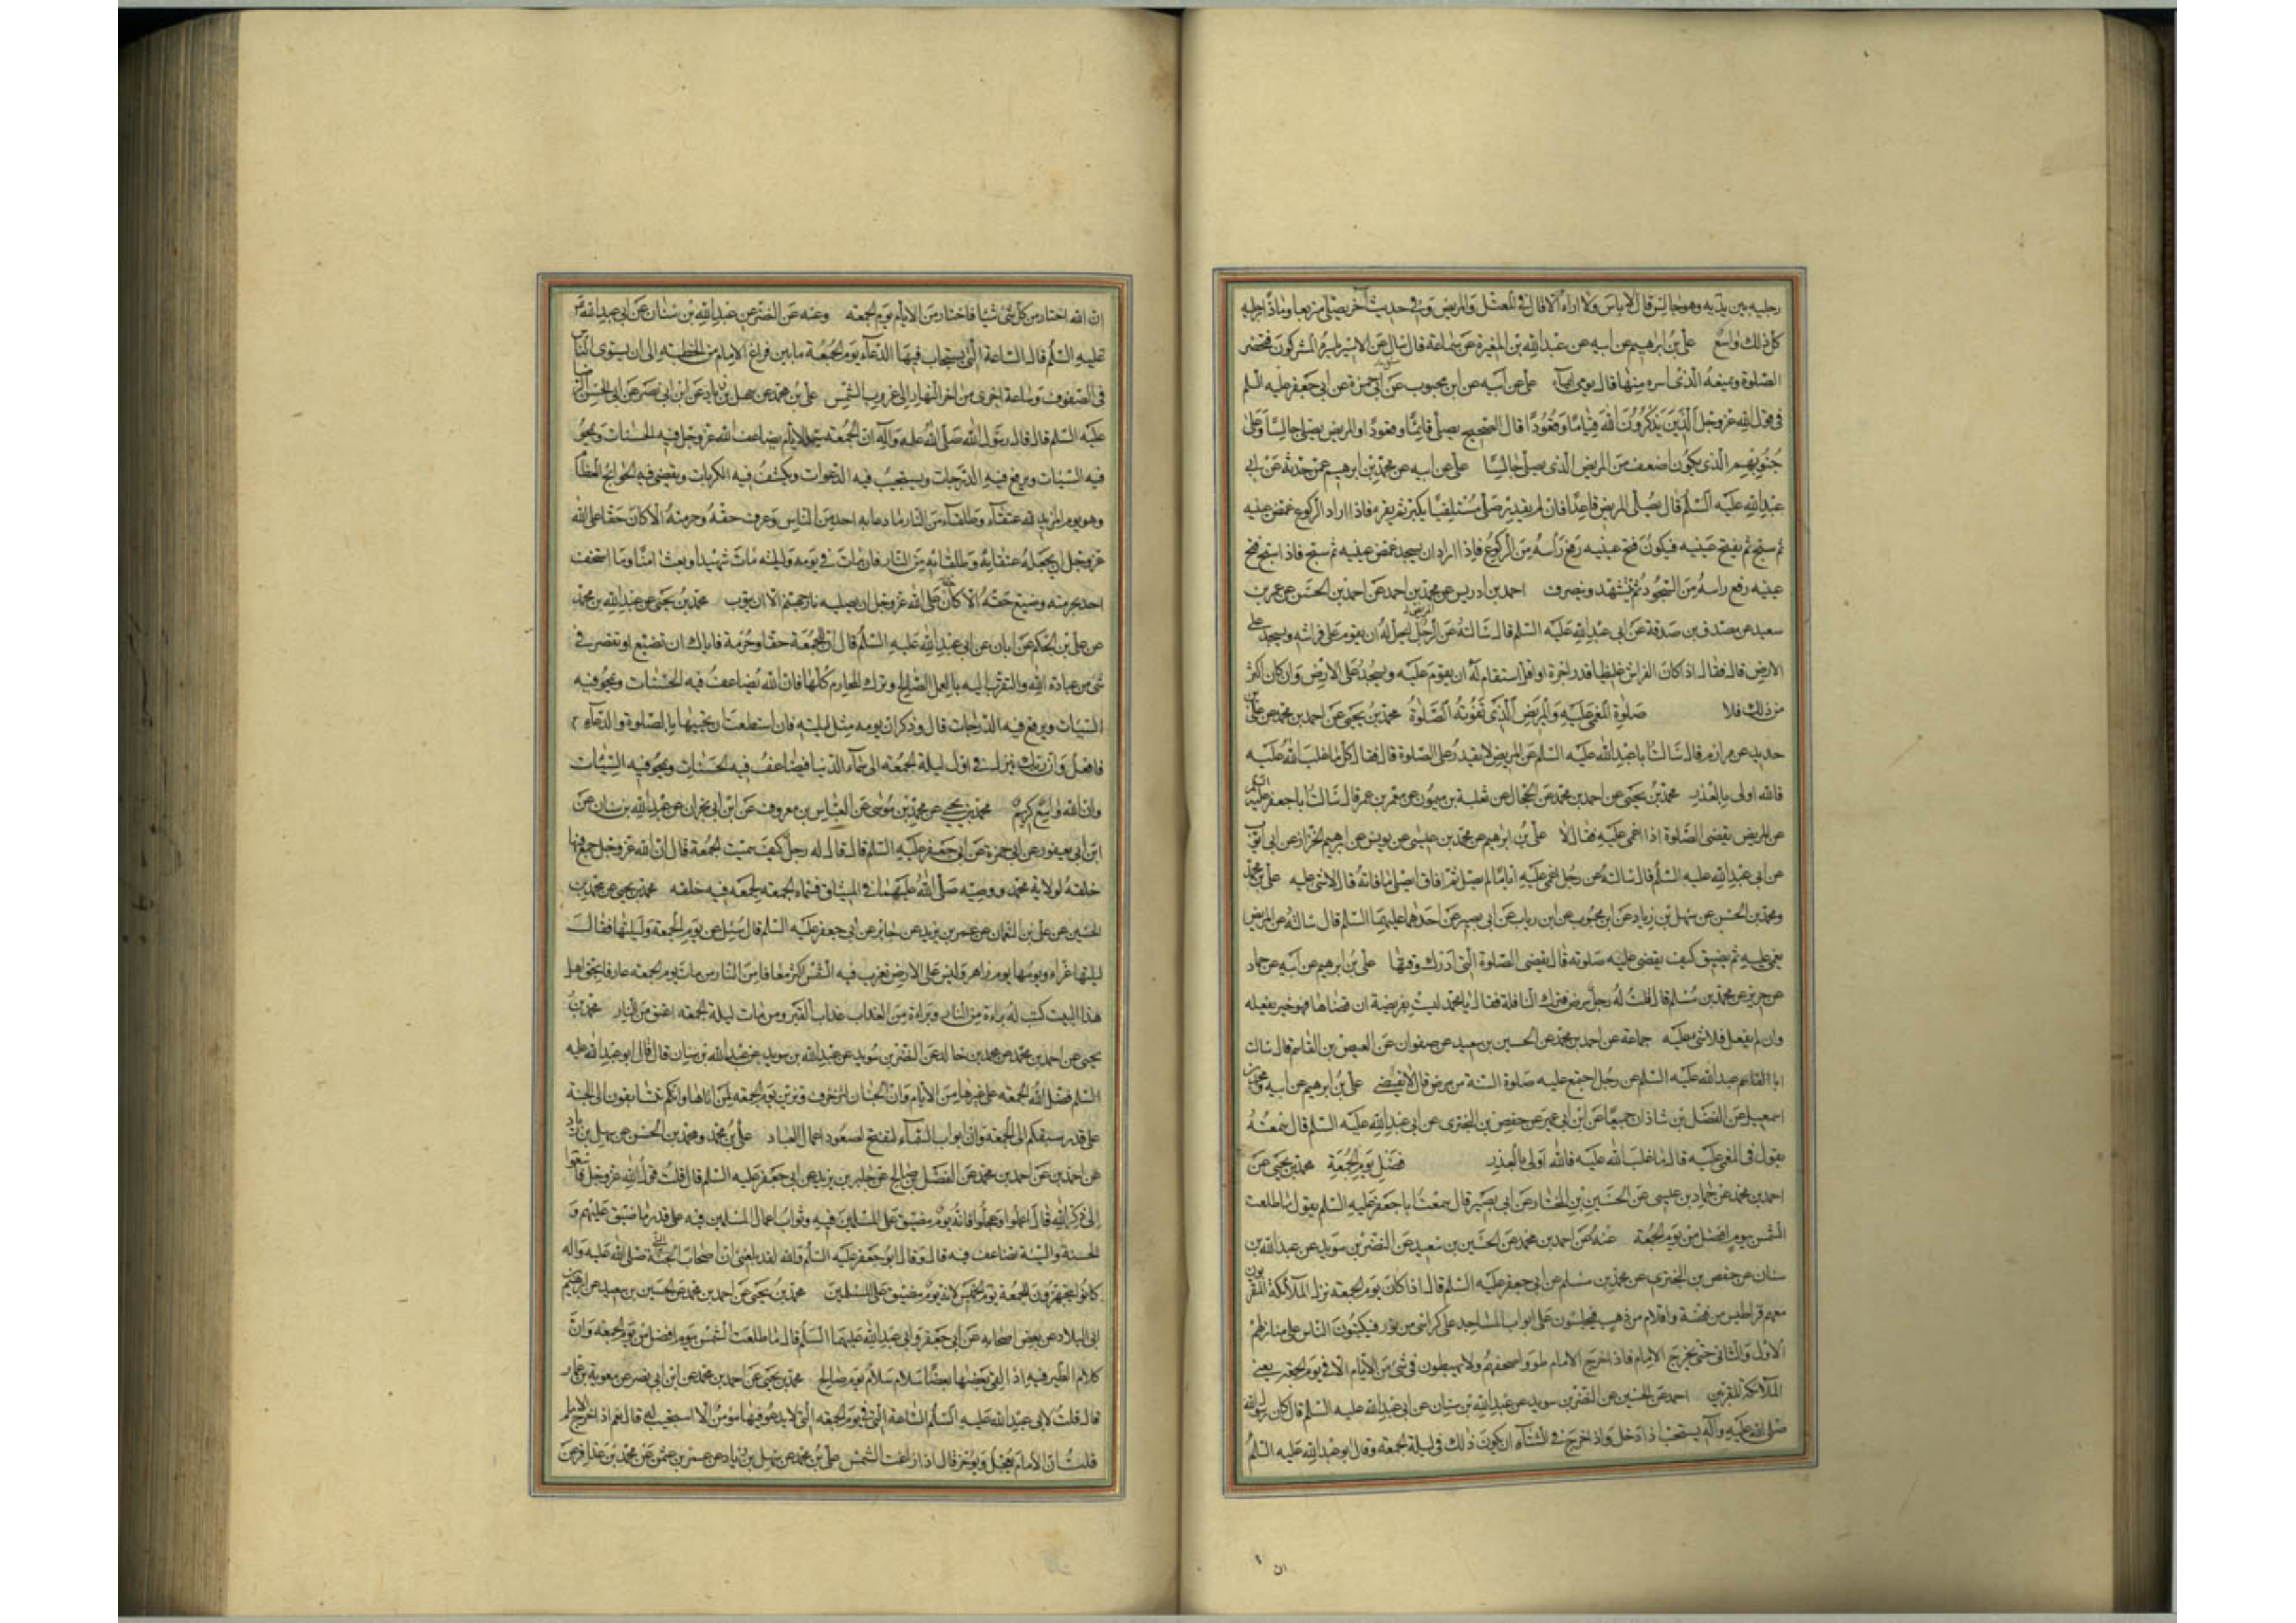 رجليه بين يديه وهو جالس قال لا باس ولا اراه الا قال في المعتل والمريض وفي حديث آخر يصلي متربعا ومادّا رجليه
كل ذلك واسع علي بن ابرهيم عن ابيه عن عبدالله بن المغيرة عن سماعة قال سال عن الاسير ياسره المشركون فتحضر
الصلوة ويمنعه الذي اسره منها قال يومي ايماء علي عن ابيه عن ابن محبوب عن ابي حمزة عن ابي جعفر عليه السلم
في قول الله عز وجل الذين يذكرون الله قياما وقعودا قال الصحيح يصلي قائما وقعودا والمريض يصلي جالسا وعلى
جنوبهم الذي يكون اضعف من المريض الذي يصلي جالسا علي عن ابيه عن محمد بن ابرهيم عمن حدثه عن ابي
عبدالله عليه السلم قال يصلي المريض قاعدا فان لم يقدر صلى مستلقيا يكبر ثم يقرء فاذا اراد الركوع غمض عينيه
ثم سبح ثم يفتح عينيه فيكون فتح عينيه رفع راسه من الركوع فاذا اراد ان يسجد غمض عينيه ثم سبح فاذا سبح فتح
عينيه رفع راسه من السجود ثم يتشهد وينصرف احمد بن ادريس عن محمد بن احمد عن احمد بن الحسن عن عمرو بن
سعيد عن مصدق بن صدقة عن ابي عبدالله عليه السلم قال سالته عن الرجل المريض ايحل له ان يقوم على فراشه ويسجد على
الارض قال فقال اذا كان الفراش غليظا قدر اجرة او اقل استقام له ان يقوم عليه ويسجد على الارض وان كان اكثر
من ذلك فلا صلوة المغمى عليه والمريض الذي تفوته الصلوة محمد بن يحيى عن احمد بن محمد عن علي بن
حديد عن مرازم قال سالت ابا عبدالله عليه السلم عن المريض لا يقدر على الصلوة قال فقال كل ما غلب الله عليه
فالله اولى بالعذر محمد بن يحيى عن احمد بن محمد عن الحجال عن ثعلبة بن ميمون عن معمر بن عمر قال سالت ابا جعفر عليه السلم
عن المريض يقضي الصلوة اذا اغمي عليه فقال لا علي بن ابرهيم عن محمد بن عيسى عن يونس عن ابرهيم الخزاز عن ابي ايوب
عن ابي عبدالله عليه السلم قال سالته عن رجل اغمي عليه اياما لم يصل ثم افاق ايصلي ما فاته قال لا شئ عليه علي بن محمد
ومحمد بن الحسن عن سهل بن زياد عن ابن محبوب عن ابن رياب عن ابي بصير عن احدهما عليهما السلم قال سالته عن المريض
يغمى عليه ثم يفيق كيف يقضي صلوته قال يقضي الصلوة التي ادرك وقتها علي بن ابرهيم عن ابيه عن حماد
عن حريز عن محمد بن مسلم قال قلت له رجل مرض فترك النافلة فقال يا محمد ليست بفريضة ان قضاها فهو خير يفعله
وان لم يفعل فلا شئ عليه جماعة عن احمد بن محمد عن الحسين بن سعيد عن صفوان عن العيص بن القاسم قال سالت
ابا عبدالله عليه السلم عن رجل اجتمع عليه صلوة السنة من مرض قال لا يقضي علي بن ابرهيم عن ابيه ومحمد بن
اسمعيل عن الفضل بن شاذان جميعا عن ابن ابي عمير عن حفص بن البختري عن ابي عبدالله عليه السلم قال سمعته
يقول في المغمى عليه قال ما غلب الله عليه فالله اولى بالعذر فضل يوم الجمعة محمد بن يحيى عن
احمد بن محمد عن حماد بن عيسى عن الحسين بن المختار عن ابي بصير قال سمعت ابا جعفر عليه السلم يقول ما طلعت
الشمس بيوم افضل من يوم الجمعة عنه عن احمد بن محمد عن الحسين بن سعيد عن النضر بن سويد عن عبدالله بن
سنان عن حفص بن البختري عن محمد بن مسلم عن ابي جعفر عليه السلم قال اذا كان يوم الجمعة نزل الملائكة المقربون
معهم قراطيس من فضة واقلام من ذهب فيجلسون على ابواب المساجد على كراسي من نور فيكتبون الناس على منازلهم
الاول والثاني حتى يخرج الامام فاذا خرج الامام طووا صحفهم ولا يهبطون في شئ من الايام الا في يوم الجمعة يعني
الملائكة المقربين احمد عن الحسين عن النضر بن سويد عن عبدالله بن سنان عن ابي عبدالله عليه السلم قال كان رسول الله
صلى الله عليه وآله يستحب اذا دخل واذا خرج في الشتاء ان يكون ذلك في ليلة الجمعة وقال ابو عبدالله عليه السلم
ان
ان الله اختار من كل شئ شيئا فاختار من الايام يوم الجمعة وعنه عن النضر عن عبدالله بن سنان عن ابي عبدالله
عليه السلم قال الساعة التي يستجاب فيها الدعاء يوم الجمعة ما بين فراغ الامام من الخطبة الى ان يستوي الناس
في الصفوف وساعة اخرى من اخر النهار الى غروب الشمس علي بن محمد عن سهل بن زياد عن ابن ابي نصر عن ابي الحسن الرضا
عليه السلم قال قال رسول الله صلى الله عليه وآله ان الجمعة سيد الايام يضاعف الله عز وجل فيه الحسنات ويمحو
فيه السيئات ويرفع فيه الدرجات ويستجيب فيه الدعوات ويكشف فيه الكربات ويقضي فيه الحوائج العظام
وهو يوم المزيد لله عتقاء وطلقاء من النار ما دعا به احد من الناس وعرف حقه وحرمته الا كان حقا على الله
عز وجل ان يجعله من عتقائه وطلقائه من النار فان مات في يومه وليلته مات شهيدا وبعث امنا وما استخف
احد بحرمته وضيع حقه الا كان حقا على الله عز وجل ان يصليه نار جهنم الا ان يتوب محمد بن يحيى عن عبدالله بن محمد
عن علي بن الحكم عن ابان عن ابي عبدالله عليه السلم قال ان للجمعة حقا وحرمة فاياك ان تضيع او تقصر في
شئ من عبادة الله والتقرب اليه بالعمل الصالح وترك المحارم كلها فان الله يضاعف فيه الحسنات ويمحو فيه
السيئات ويرفع فيه الدرجات قال وذكر ان يومه مثل ليلته فان استطعت ان تحييها بالصلوة والدعاء
فافعل وان ربك ينزل في اول ليلة الجمعة الى سماء الدنيا فيضاعف فيه الحسنات ويمحو فيه السيئات
وان الله واسع كريم محمد بن يحيى عن محمد بن موسى عن العباس بن معروف عن ابن ابي نجران عن عبدالله بن سنان عن
ابن ابي يعفور عن ابي حمزة عن ابي جعفر عليه السلم قال قال له رجل كيف سميت الجمعة قال ان الله عز وجل جمع فيها
خلقه لولاية محمد ووصيه صلى الله عليهما في الميثاق فسماه الجمعة لجمعه فيه خلقه محمد بن يحيى عن محمد بن
الحسين عن علي بن النعمان عن عمر بن يزيد عن جابر عن ابي جعفر عليه السلم قال سئل عن يوم الجمعة وليلتها فقال
ليلتها غراء ويومها يوم زاهر وليس على الارض يوم تغرب فيه الشمس اكثر معافا من النار من مات يوم الجمعة عارفا بحق اهل
هذا البيت كتب له براءة من النار وبراءة من العذاب عذاب القبر ومن مات ليلة الجمعة اعتق من النار محمد بن
يحيى عن احمد بن محمد عن محمد بن خالد عن النضر بن سويد عن عبدالله بن سنان قال قال ابو عبدالله عليه
السلم فضل الله الجمعة على غيرها من الايام وان الجنان لتزخرف وتزين يوم الجمعة لمن اتاها وانكم تتسابقون الى الجنة
على قدر سبقكم الى الجمعة وان ابواب السماء لتفتح لصعود اعمال العباد علي بن محمد ومحمد بن الحسن عن سهل بن زياد
عن احمد بن محمد عن المفضل بن صالح عن جابر بن يزيد عن ابي جعفر عليه السلم قال قلت قول الله عز وجل فاسعوا
الى ذكر الله قال اعملوا وعجلوا فانه يوم مضيق على المسلمين فيه وثواب اعمال المسلمين فيه على قدر ما ضيق عليهم و
الحسنة والسيئة تضاعف فيه قال وقال ابو جعفر عليه السلم والله لقد بلغني ان اصحاب النبي صلى الله عليه وآله
كانوا يتجهزون للجمعة يوم الخميس لانه يوم مضيق على المسلمين محمد بن يحيى عن احمد بن محمد عن الحسين بن سعيد عن ابرهيم بن
ابي البلاد عن بعض اصحابه عن ابي جعفر وابي عبدالله عليهما السلم قال ما طلعت الشمس بيوم افضل من يوم الجمعة وان
كلام الطير فيه اذا لقي بعضها بعضا سلام سلام يوم صالح محمد بن يحيى عن احمد بن محمد عن ابن ابي نصر عن معوية بن عمار
قال قلت لابي عبدالله عليه السلم الساعة التي في يوم الجمعة التي لا يدعو فيها مؤمن الا استجيب له قال نعم اذا خرج الامام
قلت ان الامام يعجل ويؤخر قال اذا زاغت الشمس علي بن محمد عن سهل بن زياد عن عمرو بن عثمن عن محمد بن عذافر عن